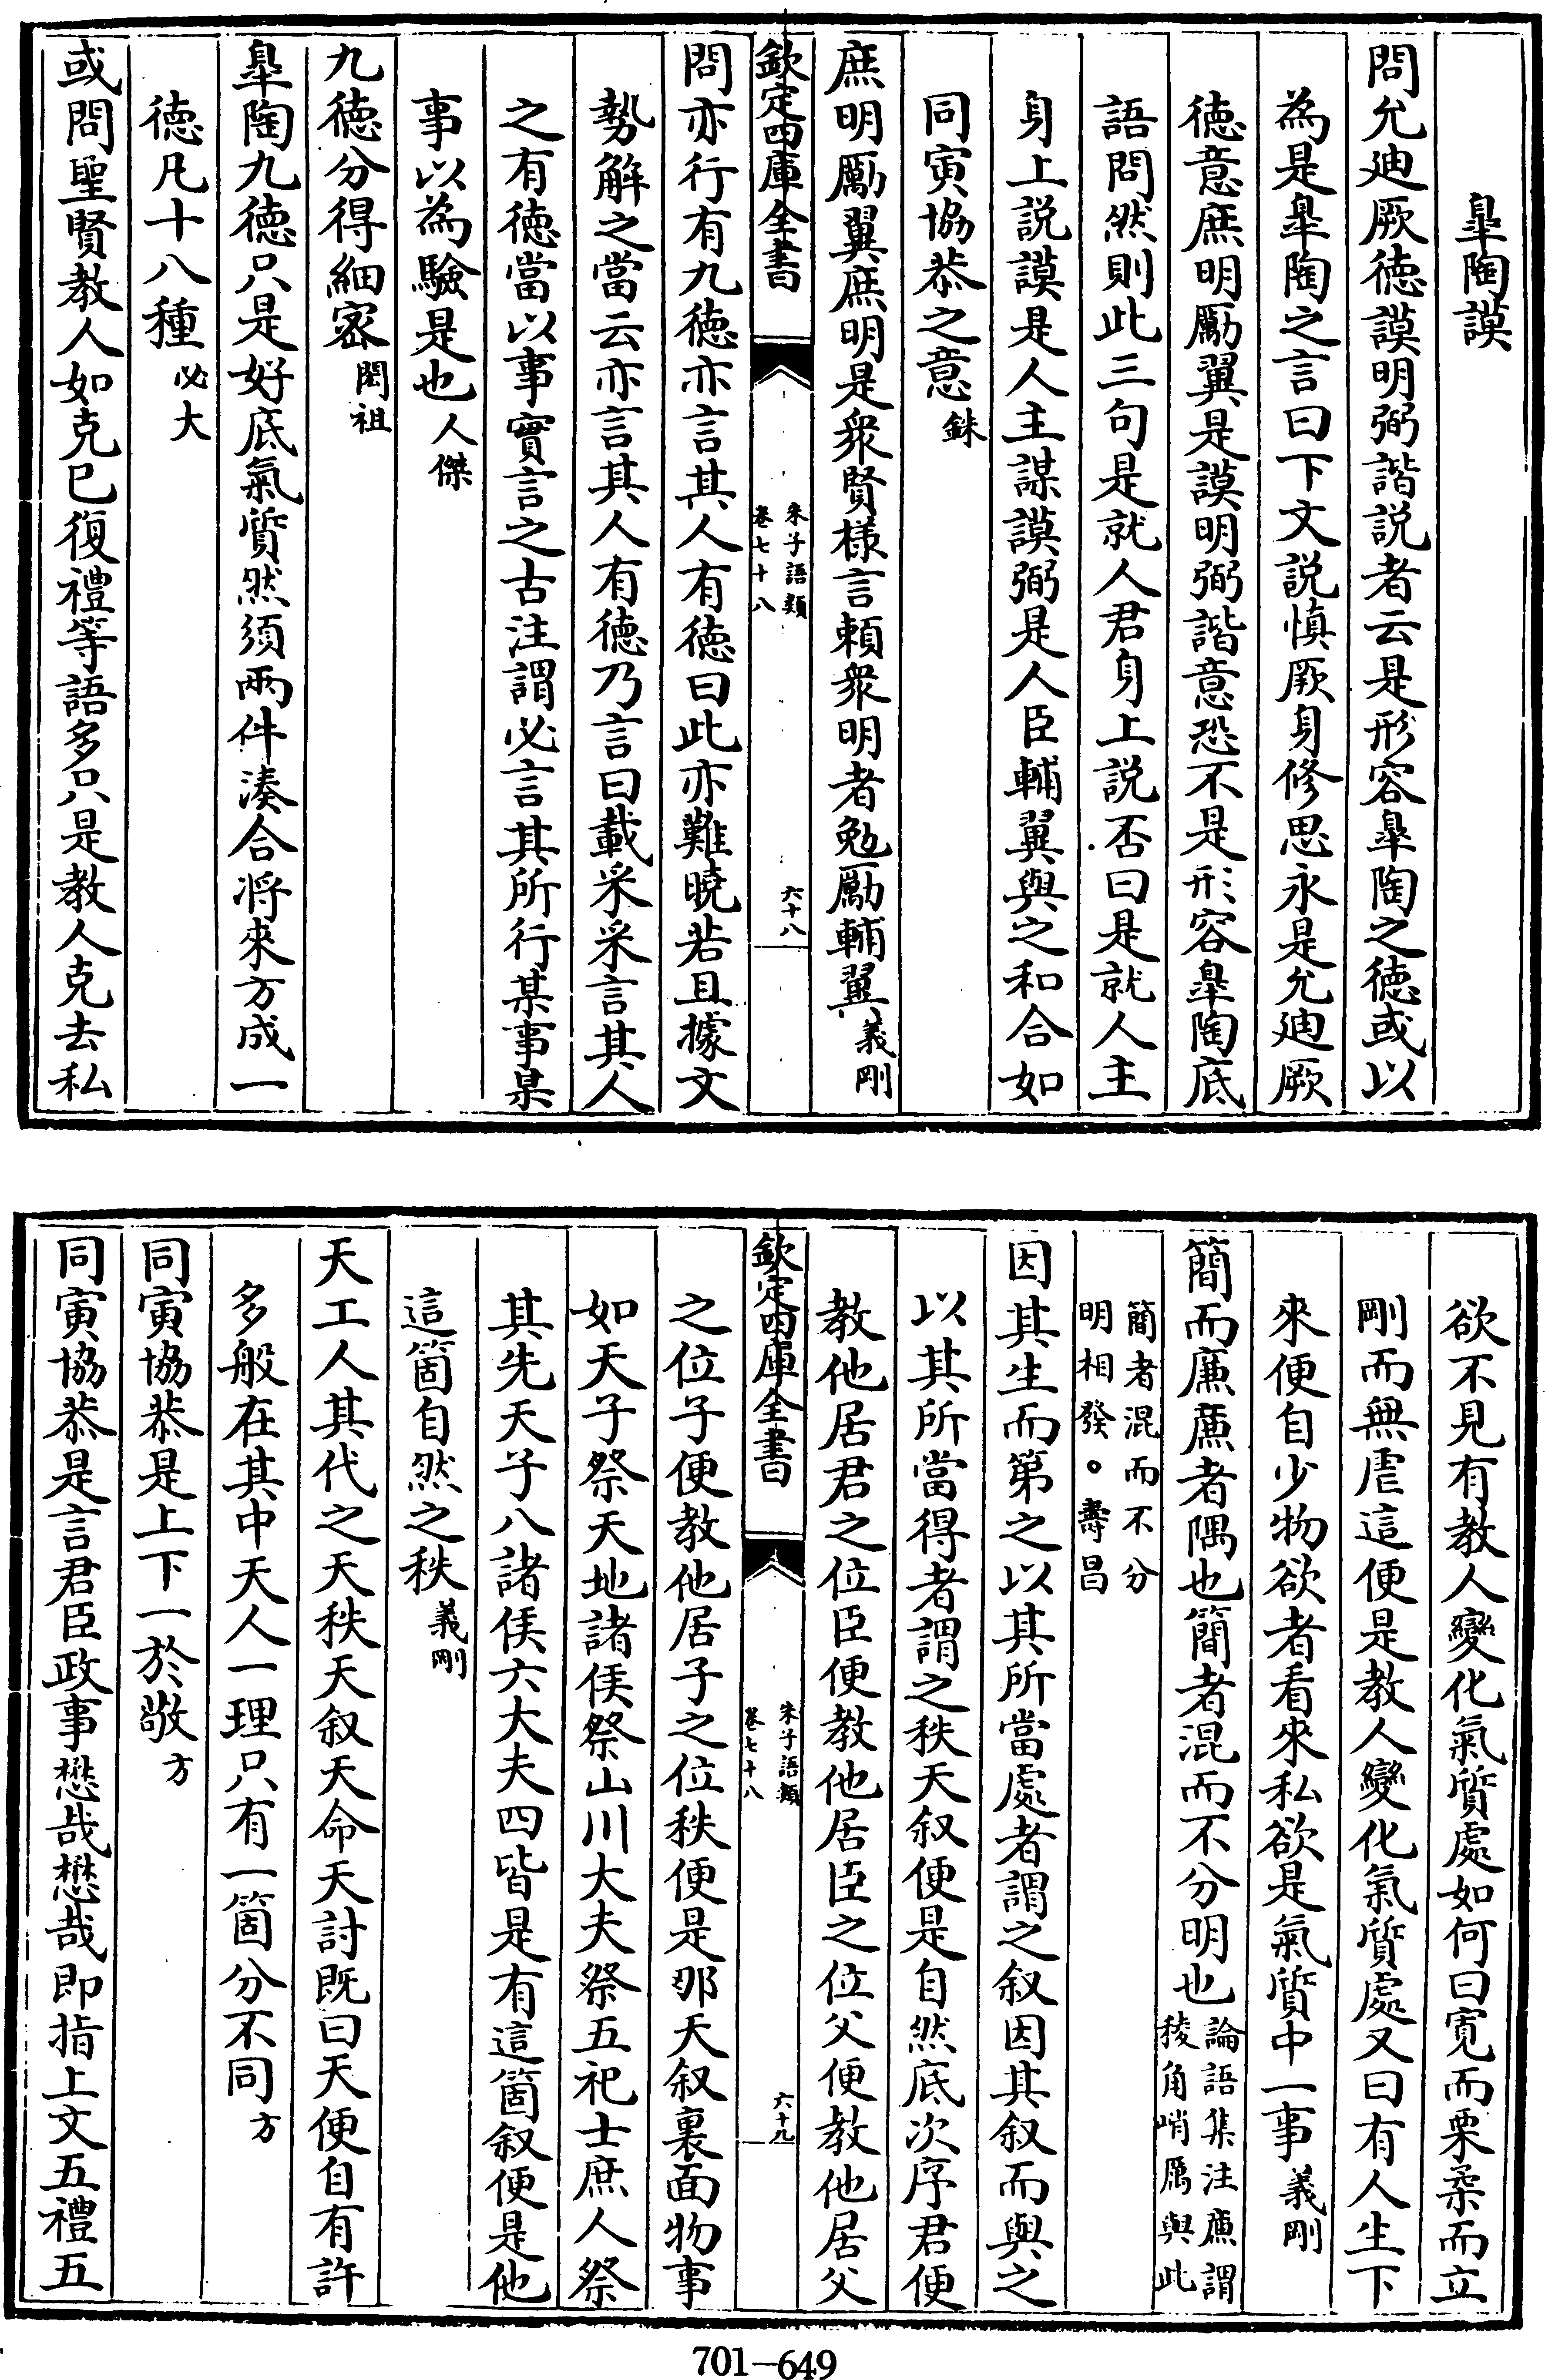 臯陶謨
問允廸厥徳謨明弼諧説者云是形容臯陶之徳或以
為是臯陶之言曰下文説慎厥身修思永是允廸厥
徳意庶明勵翼是謨明弼諧意恐不是形容臯陶底
語問然則此三句是就人君身上説否曰是就人主
身上説謨是人主謀謨弼是人臣輔翼與之和合如
同寅協恭之意銖
庶明勵翼庶明是衆賢様言頼衆明者勉勵輔翼義剛
欽定四庫全書
朱子語類
卷七十八
六十八
問亦行有九徳亦言其人有徳曰此亦難曉若且據文
勢解之當云亦言其人有徳乃言曰載采采言其人
之有徳當以事實言之古注謂必言其所行某事某
事以為驗是也人傑
九徳分得細密閎祖
臯陶九徳只是好底氣質然須兩件湊合将來方成一
徳凡十八種必大
或問聖賢教人如克已復禮等語多只是教人克去私
欲不見有教人變化氣質處如何曰寛而栗柔而立
剛而無虐這便是教人變化氣質處又曰有人生下
來便自少物欲者看來私欲是氣質中一事義剛
簡而廉廉者隅也簡者混而不分明也論語集注廉謂
稜角峭厲與此
簡者混而不分
明相發。壽昌
因其生而第之以其所當處者謂之叙因其叙而與之
以其所當得者謂之秩天叙便是自然底次序君便
教他居君之位臣便教他居臣之位父便教他居父
欽定四庫全書
朱子語類
卷七十八
六十九
之位子便教他居子之位秩便是那天叙裏面物事
如天子祭天地諸侯祭山川大夫祭五祀士庶人祭
其先天子八諸侯六大夫四皆是有這箇叙便是他
這箇自然之秩義剛
天工人其代之天秩天叙天命天討既曰天便自有許
多般在其中天人一理只有一箇分不同方
同寅協恭是上下一於敬方
同寅協恭是言君臣政事懋哉懋哉即指上文五禮五
701-649